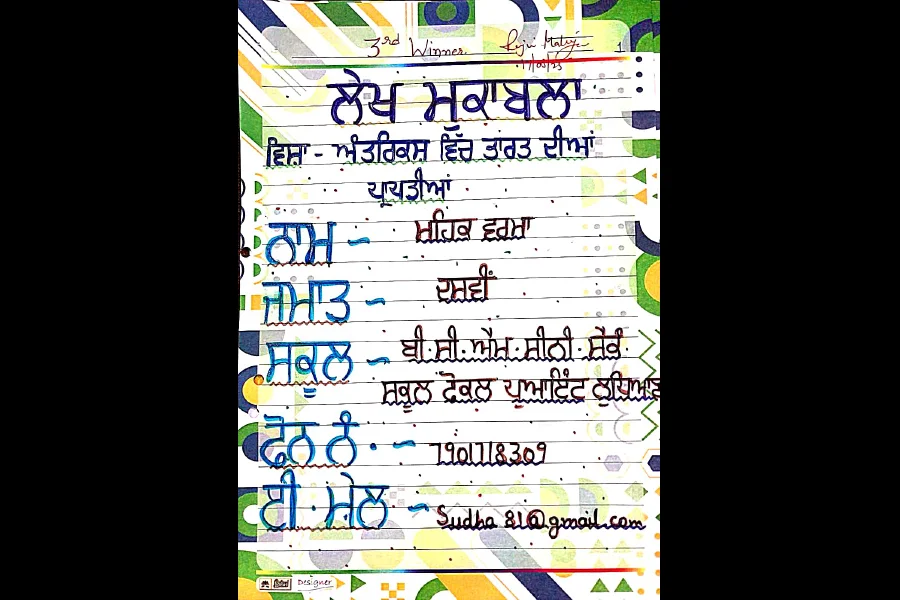 3rd Winner. 1
ਲੇਖ ਮੁਕਾਬਲਾ
ਵਿਸ਼ਾ - ਅੰਤਰਿਕਸ਼ ਵਿੱਚ ਭਾਰਤ ਦੀਆਂ
ਪ੍ਰਾਪਤੀਆਂ
ਨਾਮ - ਮਹਿਕ ਵਰਮਾ
ਜਮਾਤ - ਦਸਵੀਂ
ਸਕੂਲ - ਬੀ.ਸੀ.ਐਮ.ਸੀਨੀ.ਸੈਕੰ
ਸਕੂਲ ਫੋਕਲ ਪੁਆਇੰਟ
ਫੋਨ ਨੰ. - 7901718309
ਈ.ਮੇਲ - Sudha81@gmail.com
Designer